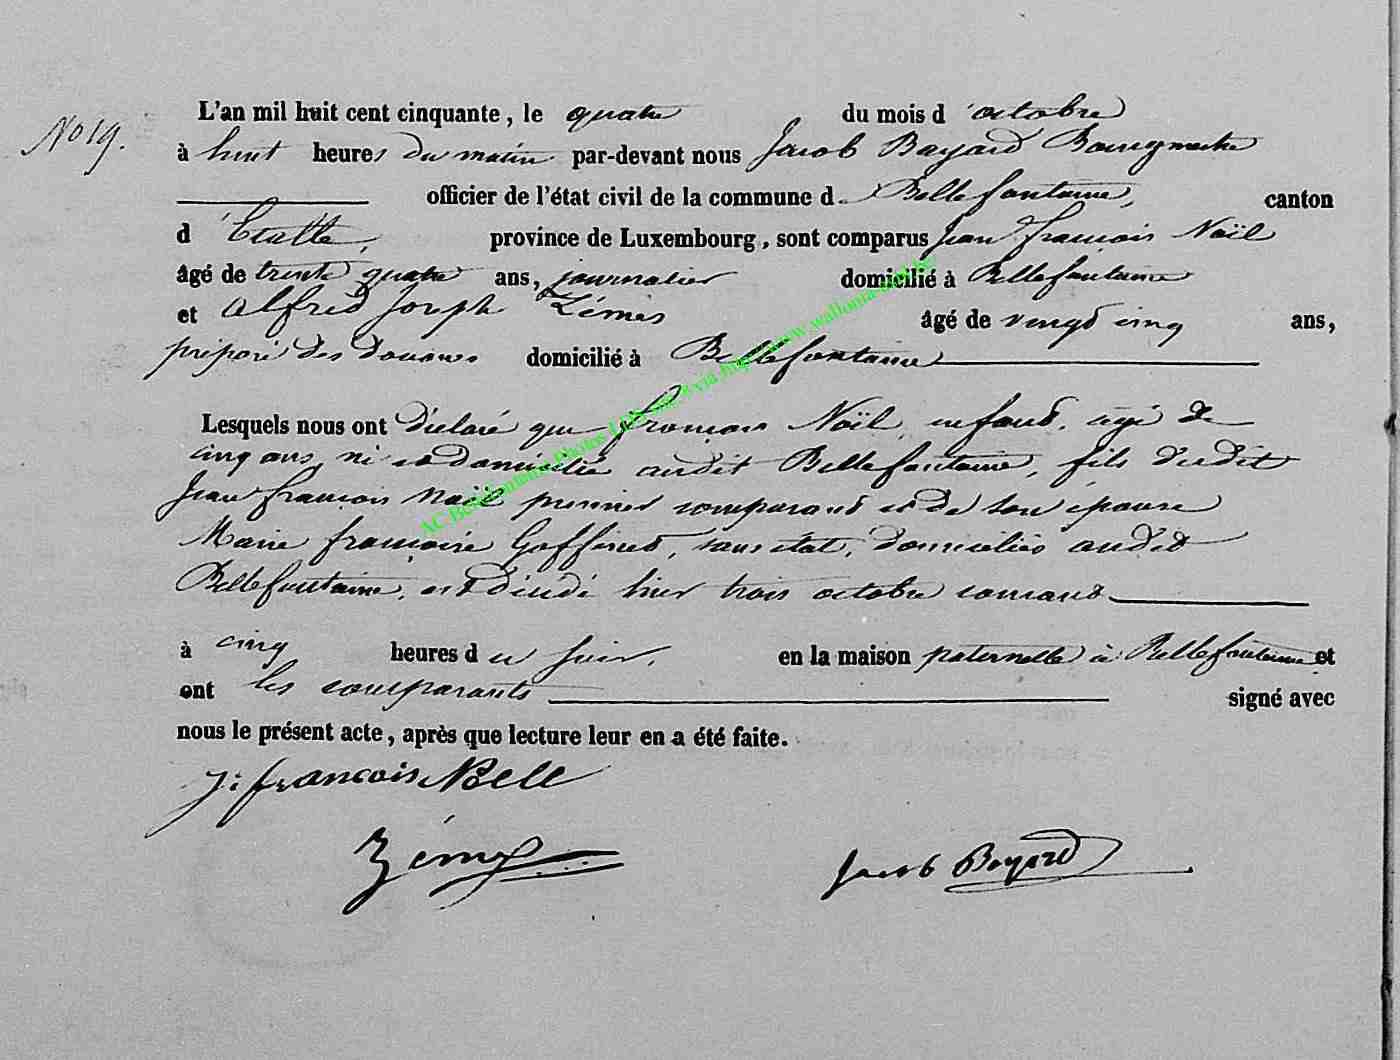 No 19.
L'an mil huit cent cinquante, le quatre du mois d'octobre
à huit heures du matin par-devant nous Jacob Bayard Bourgmestre
officier de l'état civil de la commune d Bellefontaine, canton
d'Etalle, province de Luxembourg, sont comparus Jean françois Noël
âgé de trente quatre ans, journalier domicilié à Bellefontaine
et Alfred Joseph Zémés âgé de vingt cinq ans,
préposé des douanes domicilié à Bellefontaine
Lesquels nous ont déclaré que françois Noël, enfant, agé de
cinq ans, né et domicilié audit Bellefontaine, fils dudit
Jean françois Noël premier comparant et de son épouse
Marie françoise Goffinet, sans état, domiciliés audit
Bellefontaine, est décédé hier trois octobre courant
à cinq heures du soir, en la maison paternelle à Bellefontaine et
ont les comparants signé avec
nous le présent acte, après que lecture leur en a été faite.
J. françois Noell
Jacob Bayard
AC Bellefontaine Photos www.wallonia